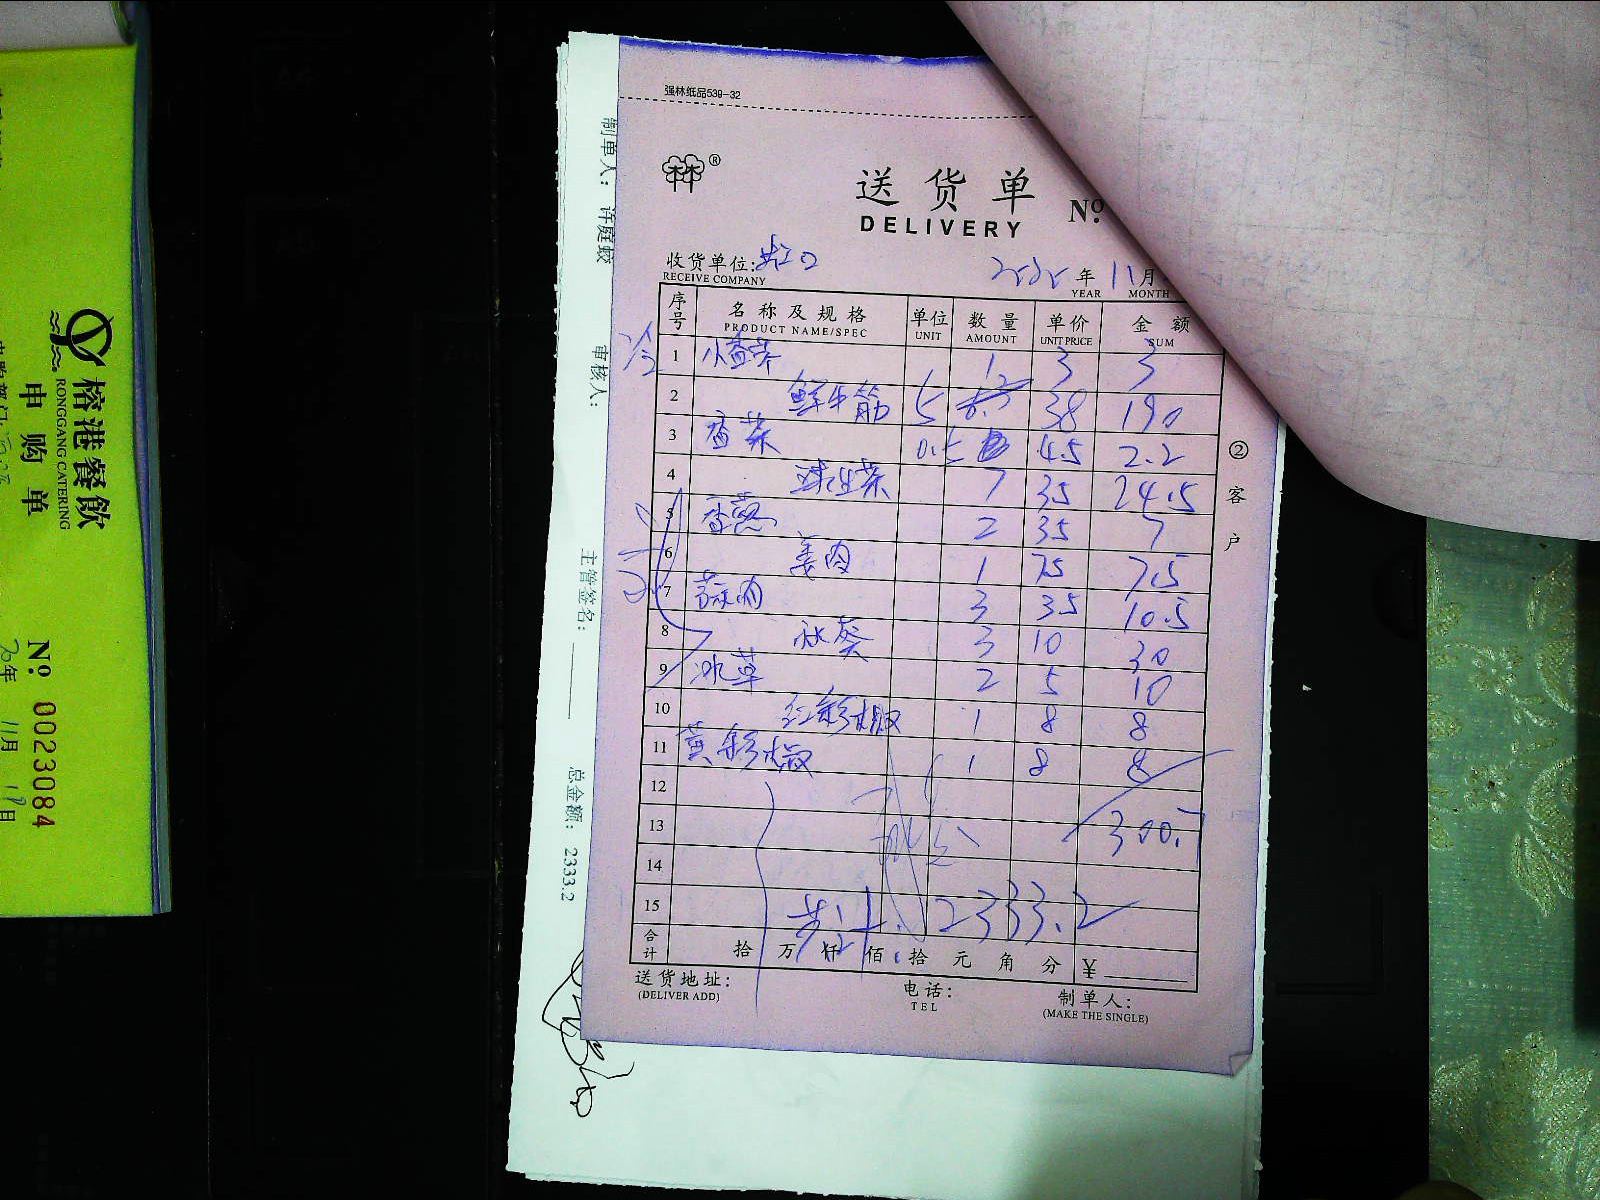 强林纸品539-32
林林®
送货单 Nº
DELIVERY
收货单位: 虹口 2020年 11月
RECEIVE COMPANY YEAR MONTH
序号 名称及规格 单位 数量 单价 金额
PRODUCT NAME/SPEC UNIT AMOUNT UNIT PRICE SUM
冷 1 小香芹 1 3 3
2 鲜牛筋 5 38 190
3 香菜 0.5 4.5 2.2
4 球生菜 7 35 24.5
5 香葱 2 35 7
6 姜肉 1 75 7.5
7 蒜肉 3 35 10.5
8 秋葵 3 10 30
9 冰草 2 5 10
10 红彩椒 1 8 8
11 黄彩椒 1 8 8
12
13 300.7
14
15 共计 2333.2
合计 拾 万 仟 佰 拾 元 角 分 ¥
送货地址: 电话: 制单人:
(DELIVER ADD) TEL (MAKE THE SINGLE)
②客户
制单人: 许庭蛟
审核人:
主管签名:
总金额: 2333.2
榕港餐飲
RONGGANG CATERING
申购单
Nº 0023084
20年 11月 19日